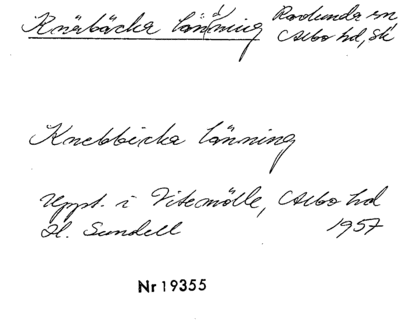 Knäbäcka länning Ravlunda sn
Albo hd, Sk
Knebbicka länning
Uppt. i Vitemölle, Albo hd
H. Sundell 1957
Nr 19355